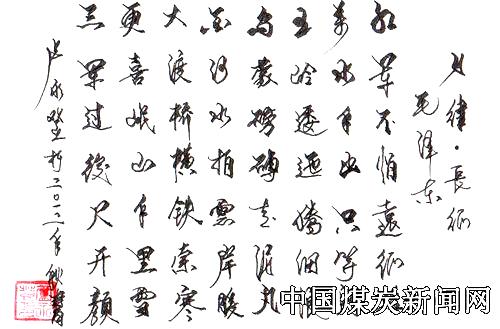 七律·長征
毛泽东
红军不怕遠征
萬水千山只等
五岭逶迤腾细浪
乌蒙磅礴走泥丸
金沙水拍雲崖暖
大渡桥横铁索寒
更喜岷山千里雪
三军过後尽开颜
二〇一二年秋
中国煤炭新闻网